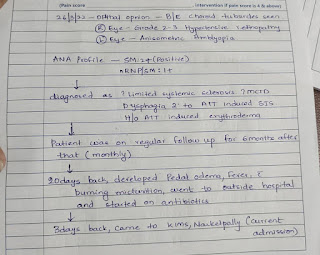 (Pain score
Intervention if pain score is 4 & above)
26/8/22 - Opthal opinion - B/E choroid tubercles seen
(R) Eye - Grade 2-3 Hypertensive retinopathy
(L) Eye - Anisometric Amblyopia
ANA Profile - SM: 2+ (Positive)
nRNP/SM: 1+
↓
diagnosed as ? Limited systemic sclerosis ? MCTD
Dysphagia 2° to ATT induced
H/o ATT induced erythroderma
↓
Patient was on regular follow up for 6 months after
that (monthly)
↓
20 days back, developed Pedal edema, Fever, c̄
burning micturition, went to outside hospital
and started on antibiotics
↓
3 days back, came to KIMS, Narketpally (current
admission)